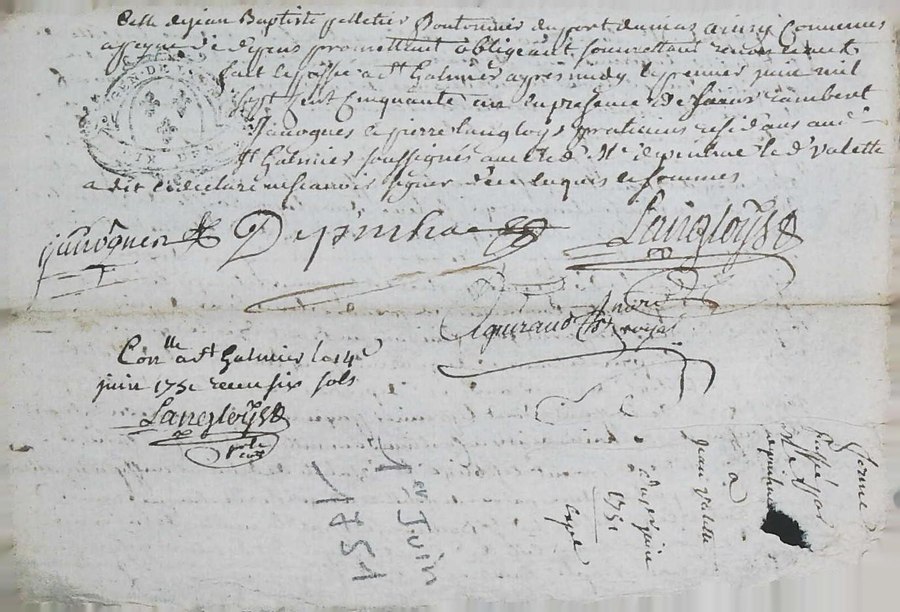 Celle de jean Baptiste pelletier Boutonnier du port ainsy Convenus
a peyne de depens promettant obligeant soumettant renonceant
fait et passé a St Galmier apres midy le premier juin mil
sept cent Cinquante un en presence de rambert
Janognes et pierre Langloys praticiens residans aud
St Galmier soussignés avec led. Sr depinhac le d Valette
a dit et declaré ne scavoir signer de ce enquis et sommes
janognes Depinhac Langloys
Not royal
Conlle a St Galmier le 14e
juin 1751 receu six sols
Langloys
1er Juin
1751
ferme
a
jean Valette
du per juin
1751